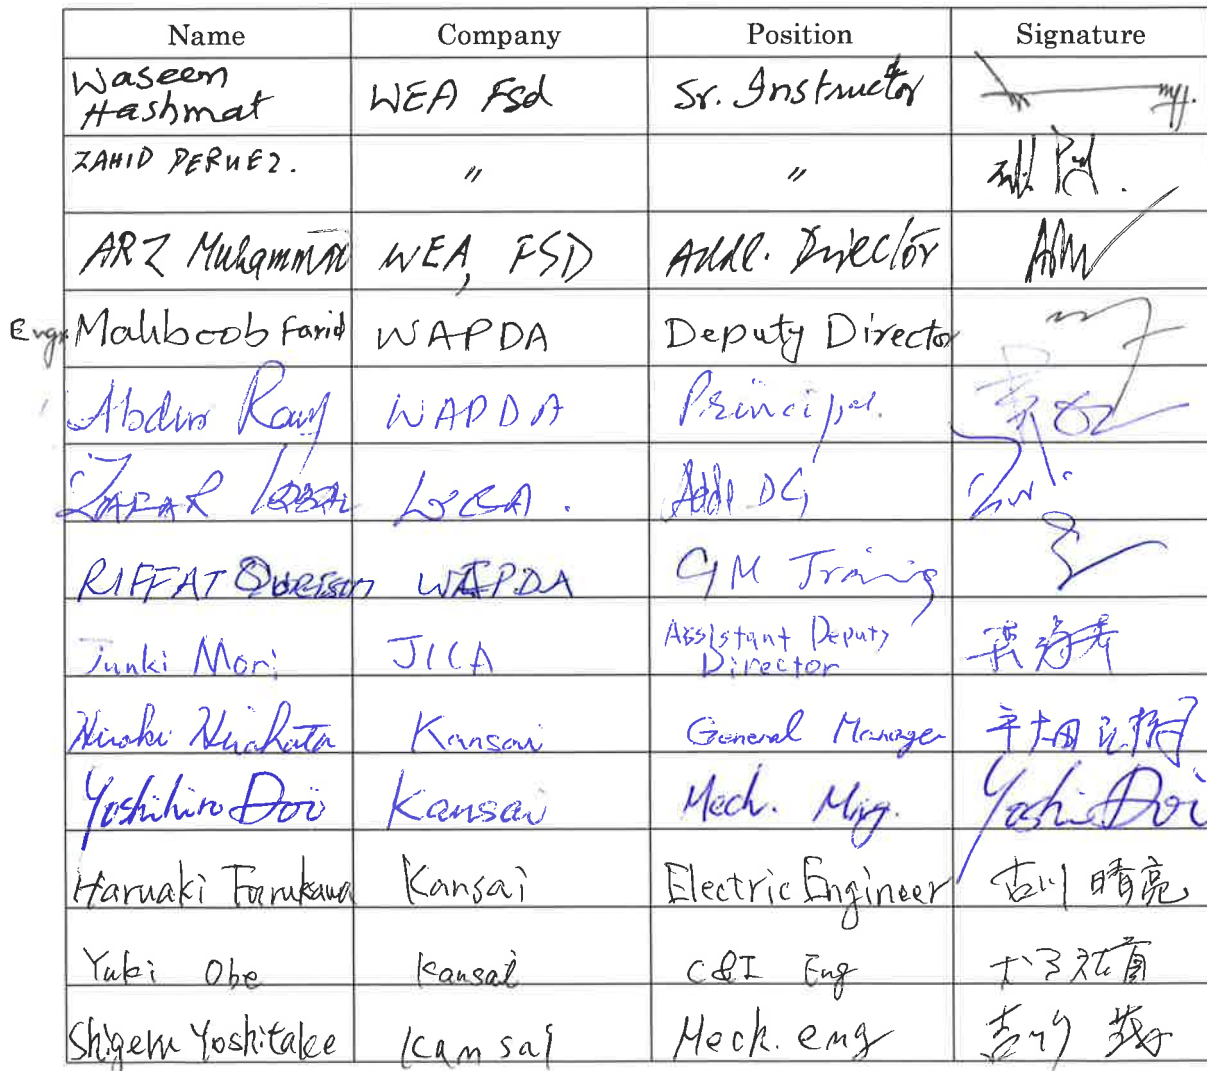 Name Company Position Signature
Waseem
Hashmat WEA Fsd Sr. Instructor
ZAHID PERUEZ. " "
ARZ Muhammad WEA, FSD Addl. Director
Engr. Mahboob Farid WAPDA Deputy Director
Abdur Rauf WAPDA Principal.
ZAFAR IQBAL Addl DG
RIFFAT QUREISHI WAPDA GM Training
Junki Mori JICA Assistant Deputy
Director
Hiroki Hirahata Kansai General Manager
Yoshihiro Doi Kansai Mech. Mrg. Yoshi Doi
Haruaki Furukawa Kansai Electric Engineer 古川 晴亮
Yuki Obe Kansai C&I Eng
Shigeru Yoshitake Kansai Mech. eng 吉竹 茂